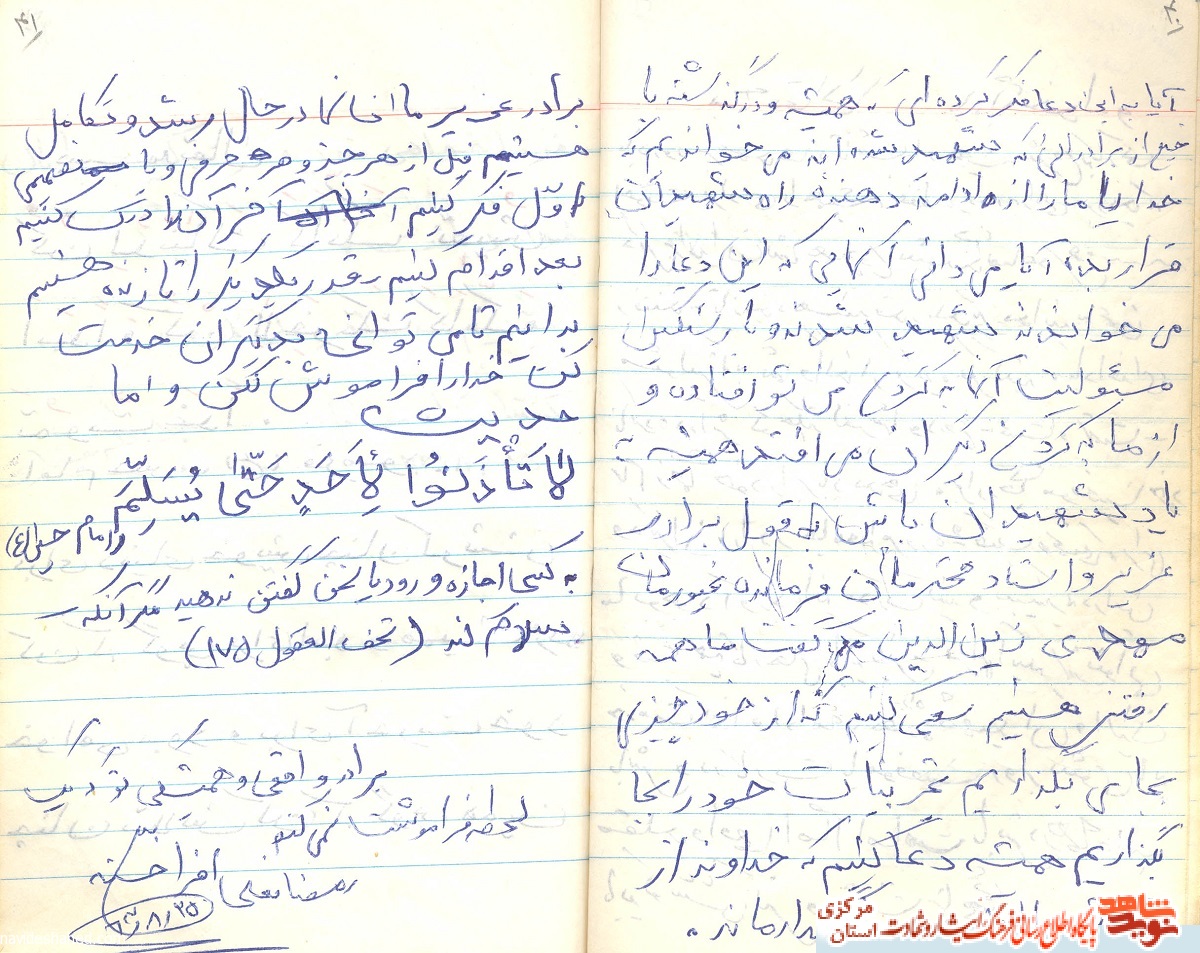 ۴۰
آیا به این دعا فکر کرده‌ای که همیشه و در گذشته با
جمع از برادرانی که شهید شده‌اند می خواندیم که
خدایا ما را از ادامه دهنده راه شهیدان
قرار بده آیا می دانی آنهایی که این دعا را
می خواندند شهید شدند و بار سنگین
مسئولیت آنها به گردن من تو افتاده و
از ما به گردن دیگران می افتد همیشه به
یاد شهیدان باش به قول برادر
عزیز و استاد محترمان فرمانده غیورمان
مهدی زین الدین که گفت ما همه
رفتنی هستیم سعی کنیم که از خود چیزی
بجای بگذاریم تجربیات خود را بجا
بگذاریم همیشه دعا کنیم که خداوند از
۴۱
برادر عزیر ما انسانها در حال رشد و تکامل
هستیم قبل از هر چیز و هر حرفی و یا تصمیمی
اول فکر کنیم آن را درک کنیم
بعد اقدام کنیم قدر یکدیگر را تا زنده هستیم
بدانیم تا می توانی به دیگران خدمت
کن خدا را فراموش نکن و اما
حدیث
لا تَأْذَنُوا لِأَحَدٍ حَتّیٰ یُسَلِّمَ
امام حسین (ع)
به کسی اجازه ورود یا سخن گفتن ندهید مگر آنکه
سلام کند (تحف العقول ۱۷۵)
برادر واقعی و همیشگی تو که یک
لحظه فراموشت نمی کند
رمضانعلی افراخته
۶۳/۸/۲۵
نوید شاهد
پایگاه اطلاع رسانی فرهنگ ایثار و شهادت
استان مرکزی